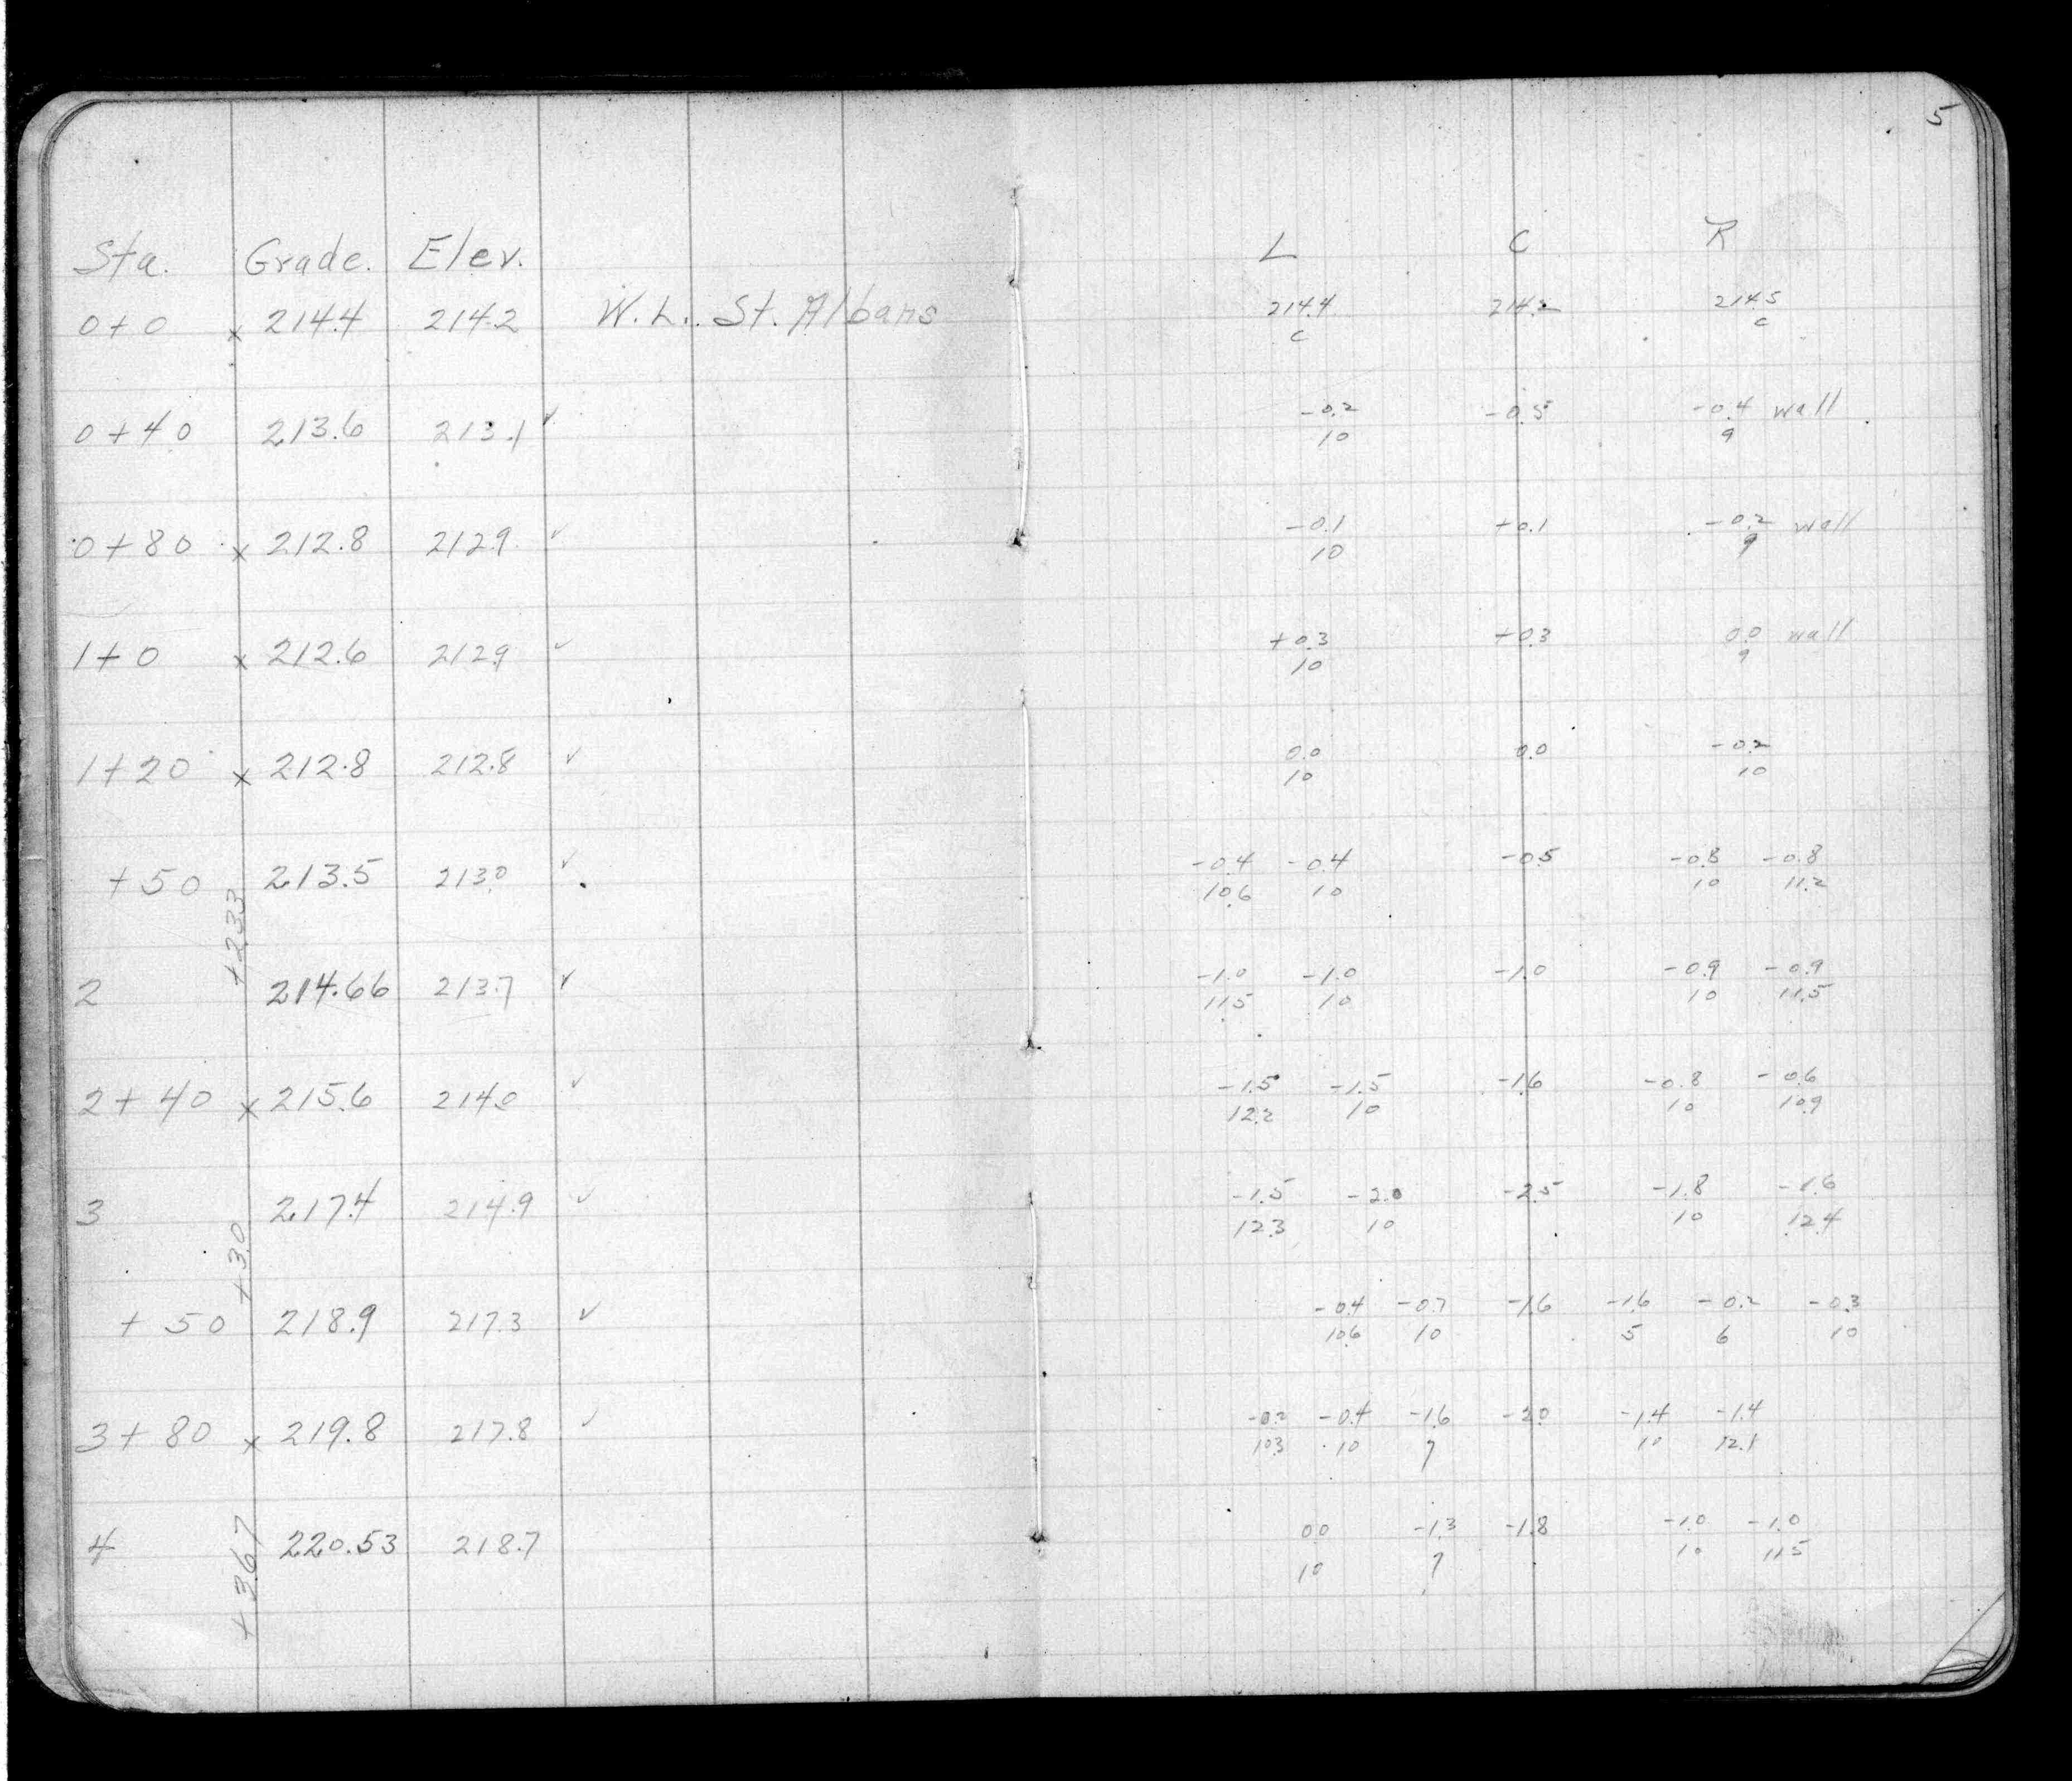 5
Sta. Grade. Elev. L C R
0+0 x 214.4 214.2 W.L. St. Albans 214.4 214.2 214.5
c c
0+40 213.6 213.1 ✓ -0.2 -0.5 -0.4 wall
10 9
0+80 x 212.8 212.9 ✓ -0.1 +0.1 -0.2 wall
10 9
1+0 x 212.6 212.9 ✓ +0.3 +0.3 0.0 wall
10 9
1+20 x 212.8 212.8 ✓ 0.0 0.0 -0.2
10 10
+50 213.5 213.0 ✓ -0.4 -0.4 -0.5 -0.8 -0.8
10.6 10 10 11.2
+2.33
2 214.66 213.7 ✓ -1.0 -1.0 -1.0 -0.9 -0.9
11.5 10 10 11.5
2+40 x 215.6 214.0 ✓ -1.5 -1.5 -1.6 -0.8 -0.6
12.2 10 10 10.9
3 217.4 214.9 ✓ -1.5 -2.0 -2.5 -1.8 -1.6
12.3 10 10 12.4
+3.0
+50 218.9 217.3 ✓ -0.4 -0.7 -1.6 -1.6 -0.2 -0.3
10.6 10 5 6 10
3+80 x 219.8 217.8 ✓ -0.2 -0.4 -1.6 -2.0 -1.4 -1.4
10.3 10 7 10 12.1
4 220.53 218.7 0.0 -1.3 -1.8 -1.0 -1.0
10 7 10 11.5
+3.67